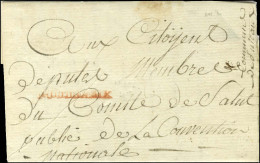 Aux Citoyens
députés Membres
du Comité de Salut
public de La Convention
Nationale